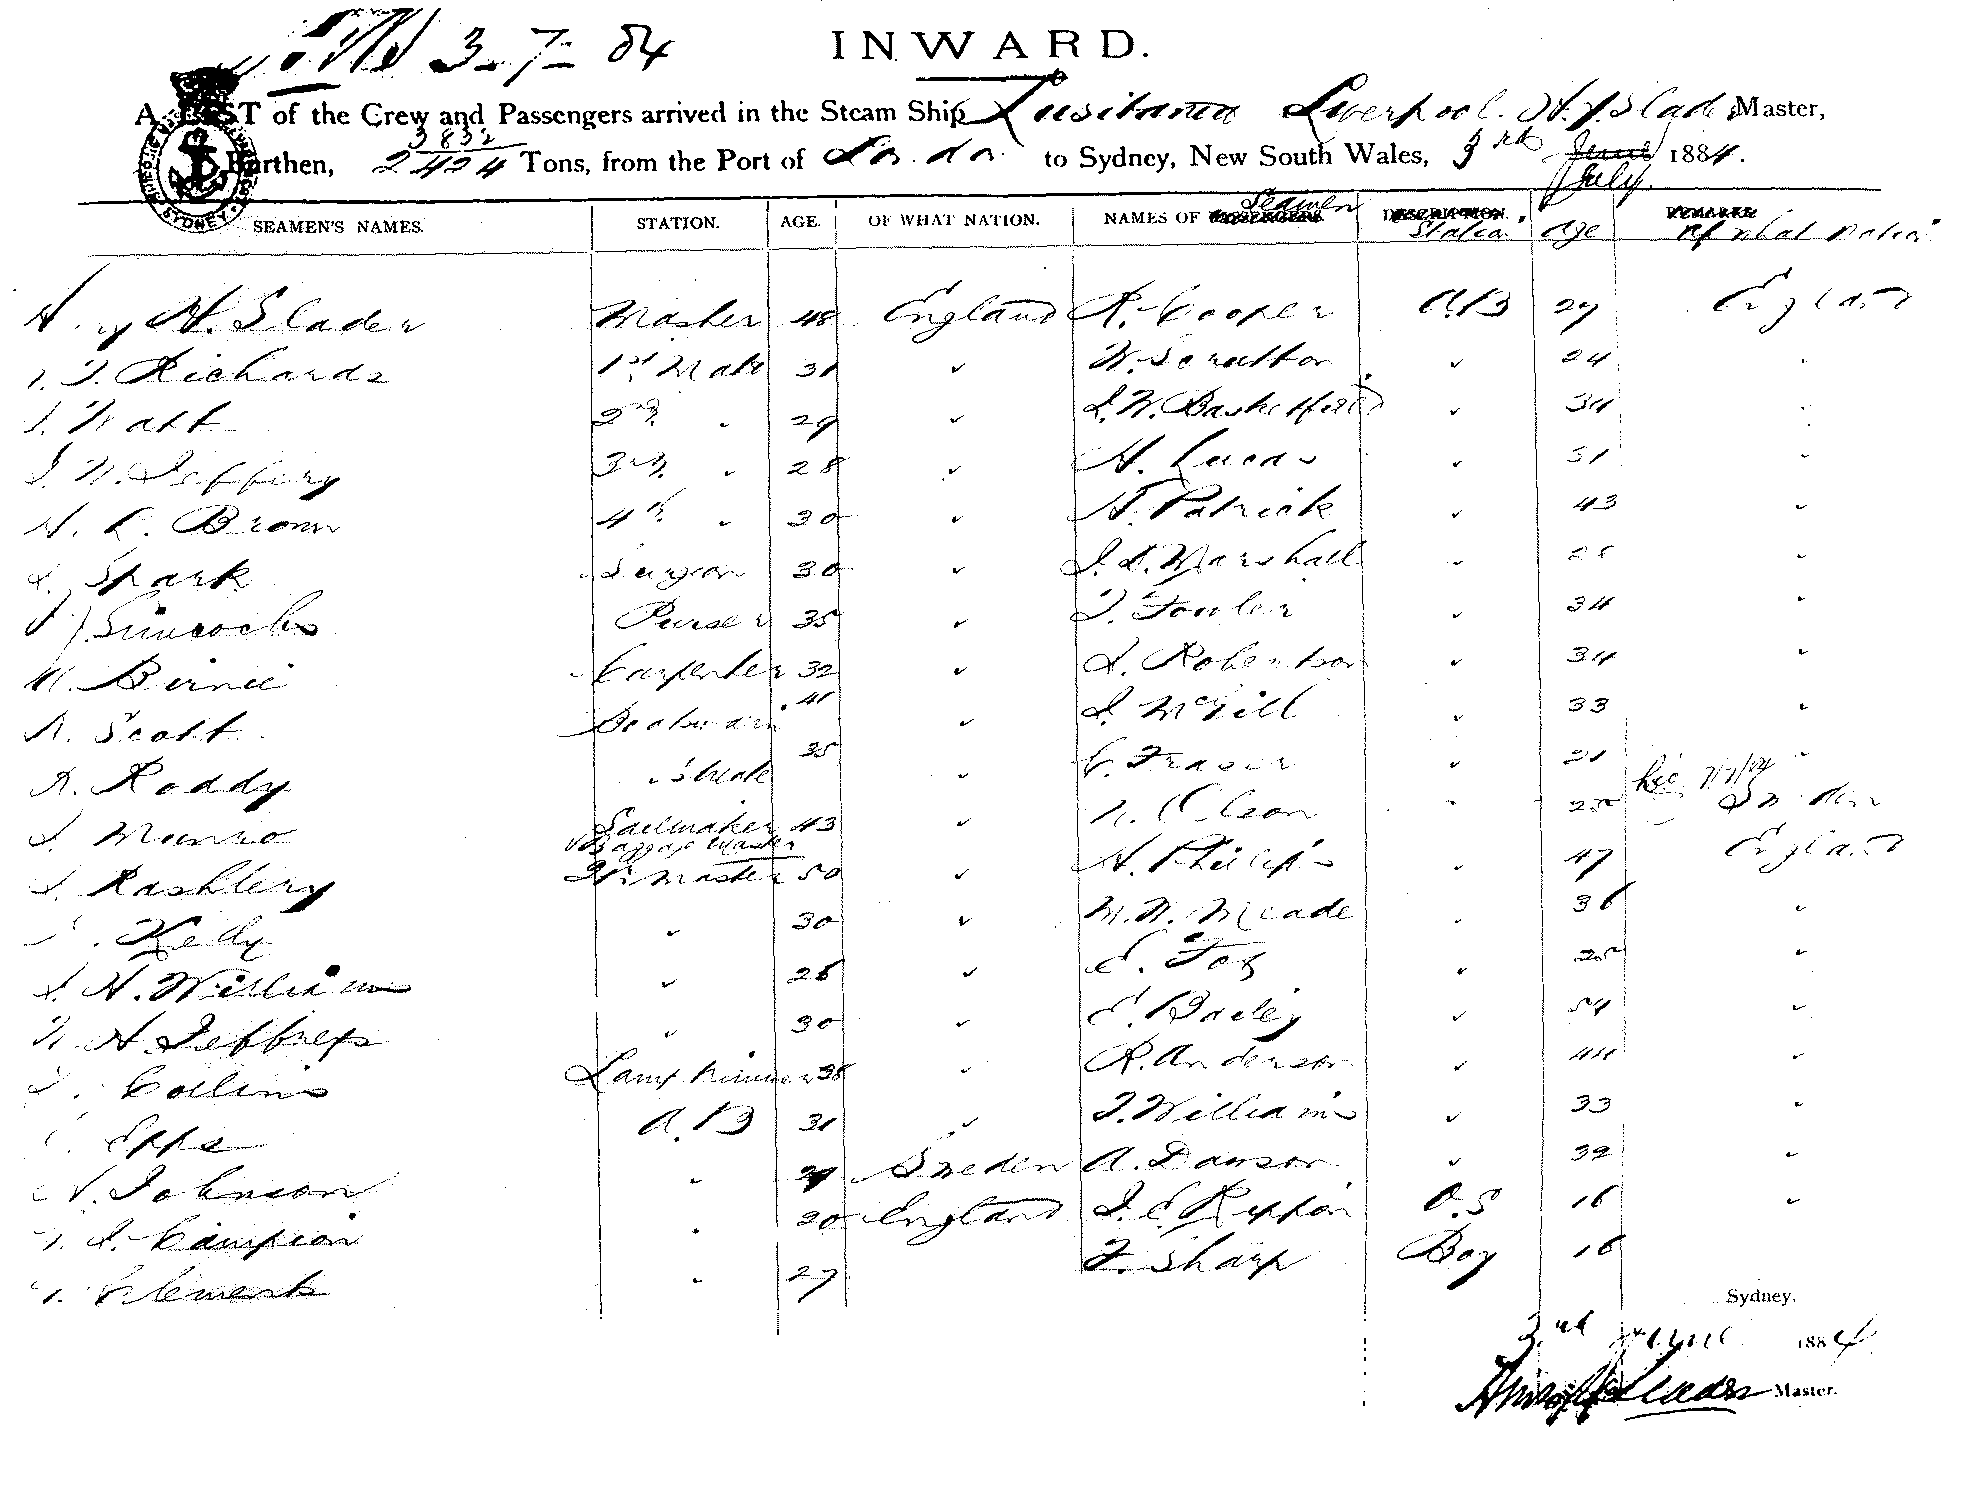 3-7-84
INWARD.
A LIST of the Crew and Passengers arrived in the Steam Ship Lusitania Liverpool. Slader Master,
3832
Burthen, 2424 Tons, from the Port of London to Sydney, New South Wales, 3rd June 1884.
July
SYDNEY
SEAMEN'S NAMES. STATION. AGE. OF WHAT NATION. NAMES OF PASSENGERS Seamen DESCRIPTION. Station Age REMARKS of what nation
H. Slader Master 48 England R. Cooper A.B 27 England
Richards 1st Mate 31 " W. Scrutton " 24 "
J. Watt 2nd " 29 " J. W. Basketfield " 34 "
J. W. Jeffery 3rd " 28 " H. Lucas " 31 "
H. C. Brown 4th " 30 " H. Patrick " 43 "
Spark Surgeon 30 " Marshall " "
Simcocks Purser 35 " Fowler " 34 "
Birnie Carpenter 32 " J. Robertson " 34 "
R. Scott Boatswain 41 " J. McGill " 33 "
R. Roddy " s mate 35 " C. Fraser " 21 "
J. Munro Sailmaker 43 " Olson " 25 Sweden
Baggage Master
J. Rashlery Qr Master 50 " H. Philips " 47 England
Kelly " 30 " W. W. Meade " 36 "
J. H. Williams " 26 " E. Foy " 25 "
W. H. Jeffreys " 30 " E. Bailey " 54 "
Collins Lamp trimmer 38 " R. Anderson " 44 "
Epps A.B 31 " J. Williams " 33 "
N. Johnson " Sweden A. Dawson " 32 "
Campion " 20 England J. E. Rippon O.S 16 "
Clements " 27 F. Sharp Boy 16
Sydney.
3rd 1884
Slader Master.